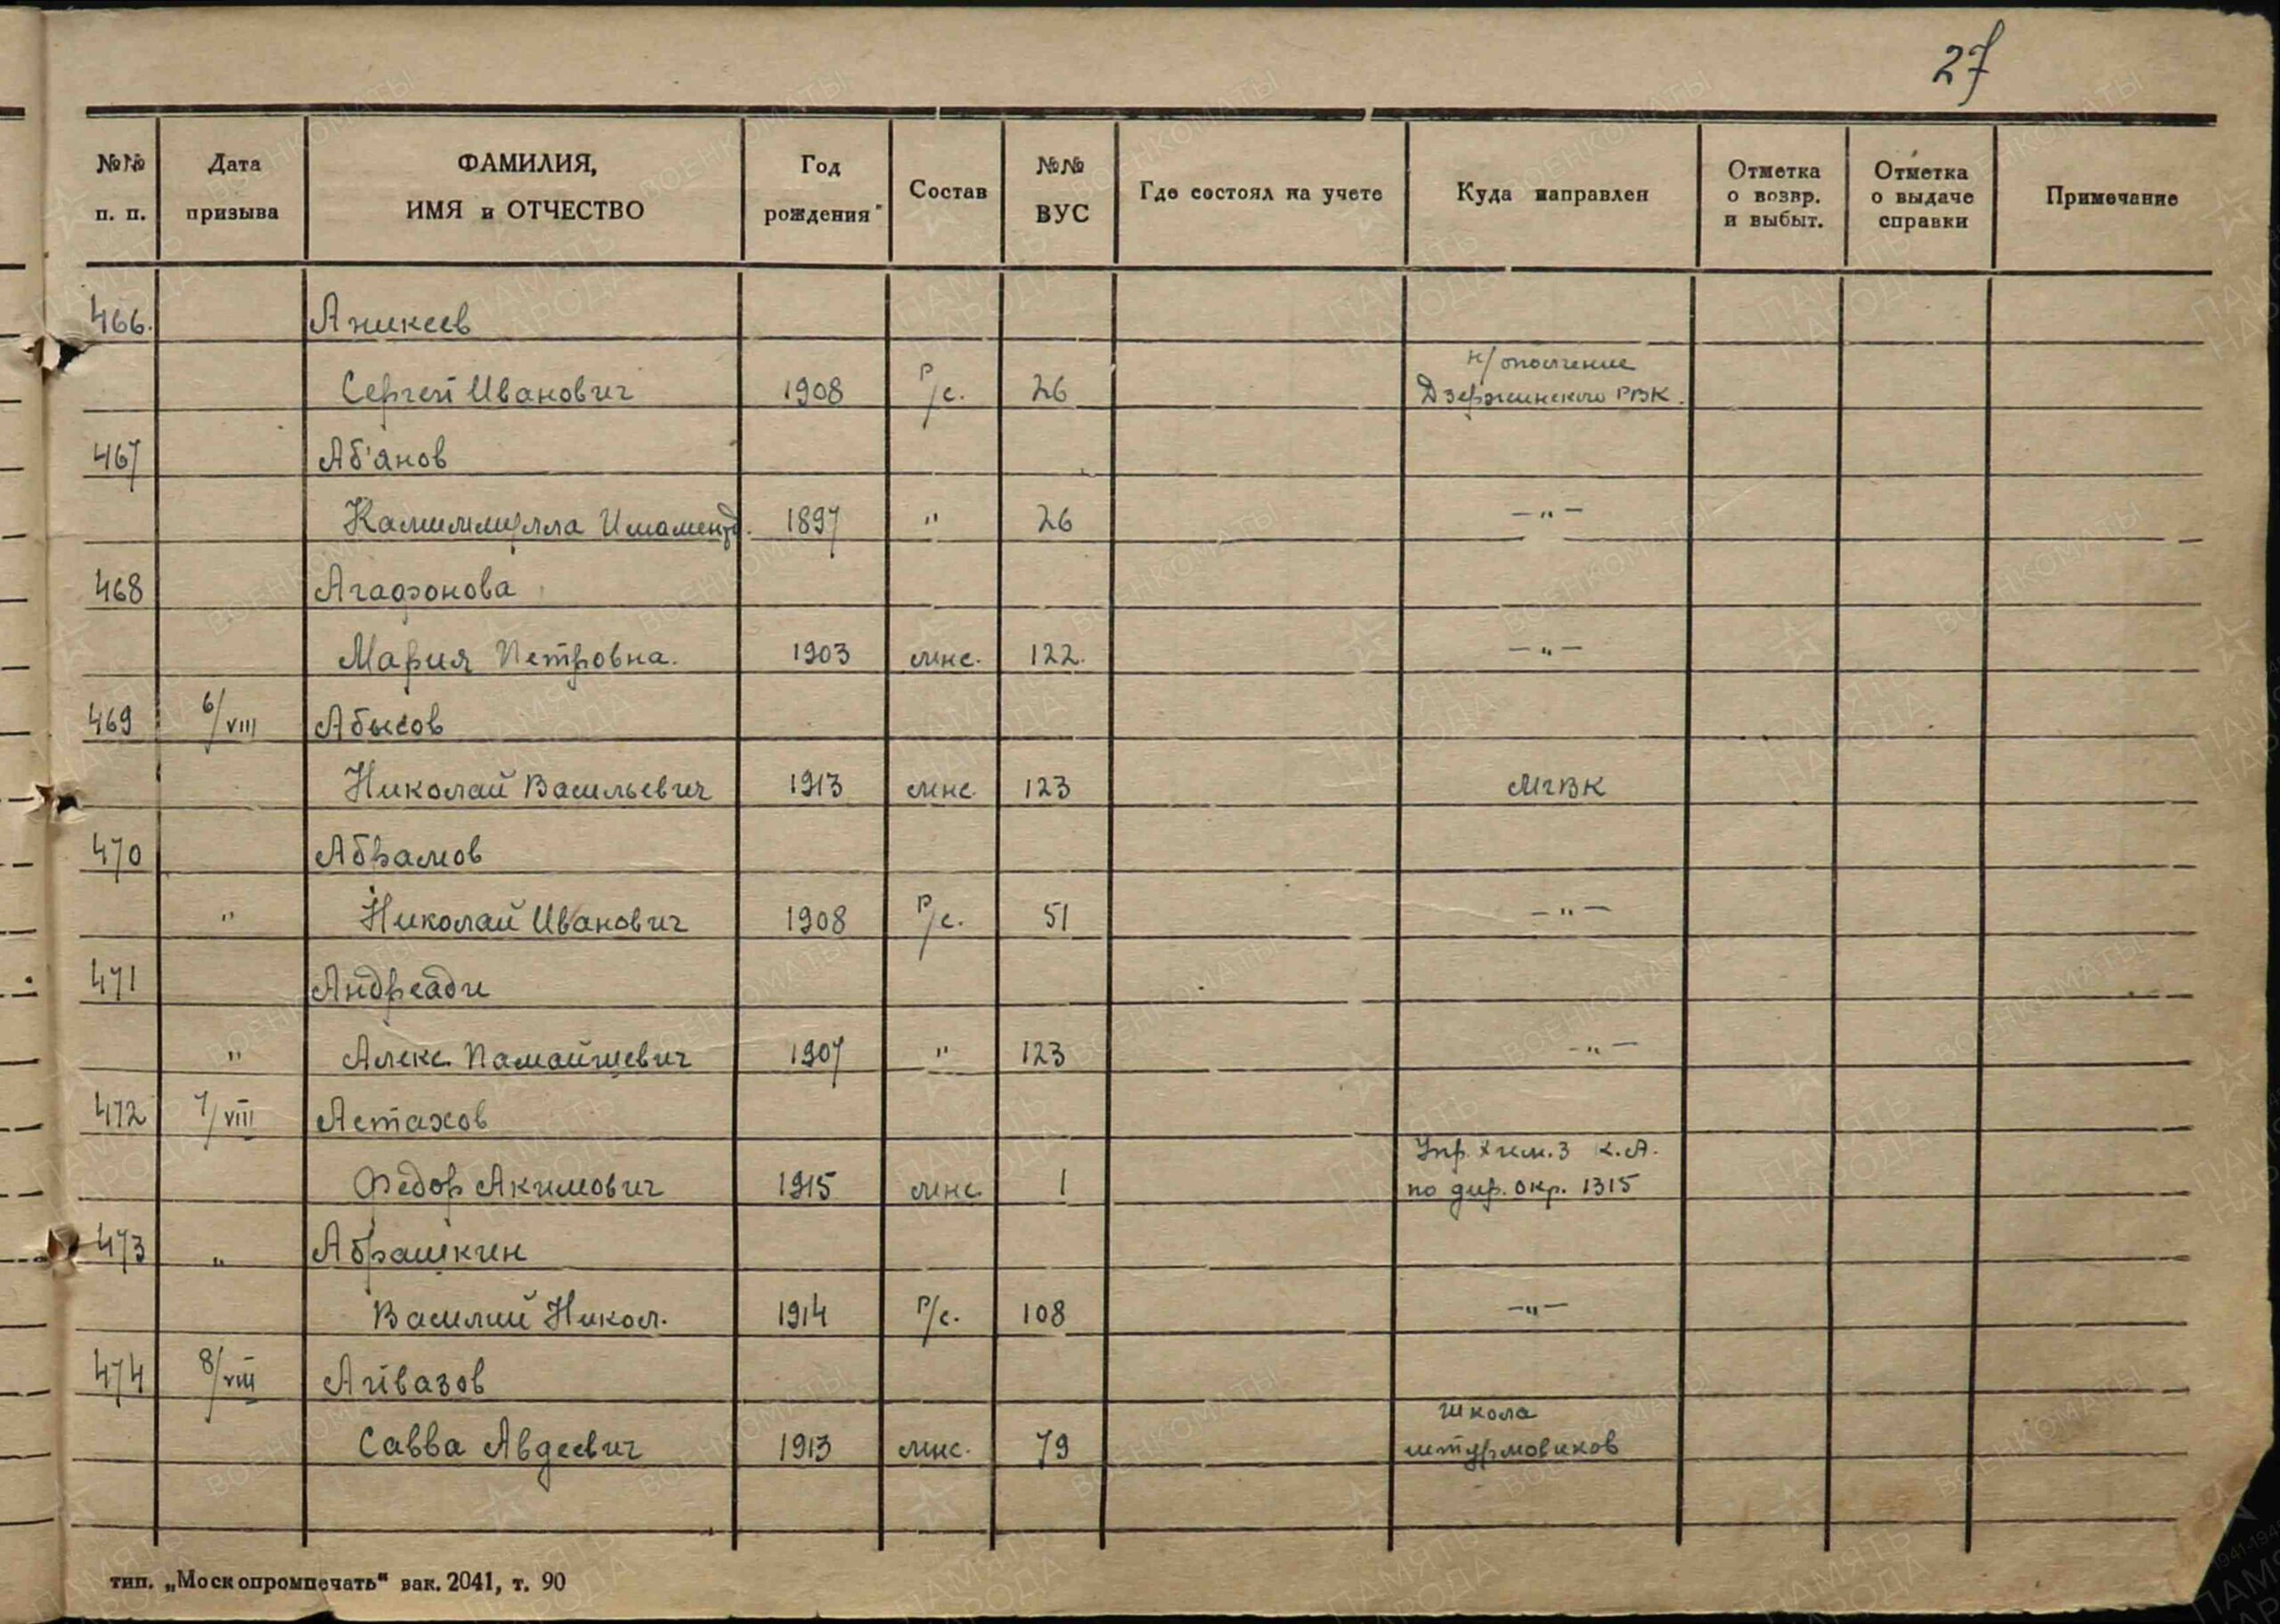 27
№№ п. п. Дата призыва ФАМИЛИЯ, ИМЯ и ОТЧЕСТВО Год рождения Состав №№ ВУС Где состоял на учете Куда направлен Отметка о возвр. и выбыт. Отметка о выдаче справки Примечание
466. Аникеев
н/ополчение
Сергей Иванович 1908 р/с. 26 Дзержинского РВК.
467 Аб'янов
1897 " 26 — " —
468 Агафонова
Мария Петровна. 1903 мнс. 122. — " —
469 6/VIII Абысов
Николай Васильевич 1913 мнс 123 МГВК
470 Абрамов
" Николай Иванович 1908 р/с. 51 — " —
471 Андреади
" Алекс. 1907 " 123 — " —
472 7/VIII Астахов
Упр. Хим. З К.А.
Федор Акимович 1915 мнс. 1 по дир. окр. 1315
473 " Абрашкин
Василий Никол. 1914 р/с. 108 — " —
474 8/VIII Айвазов
Школа
Савва Авдеевич 1913 мнс. 79 штурмовиков
тип. „Москопромпечать“ зак. 2041, т. 90
ПАМЯТЬ НАРОДА
ВОЕНКОМАТЫ